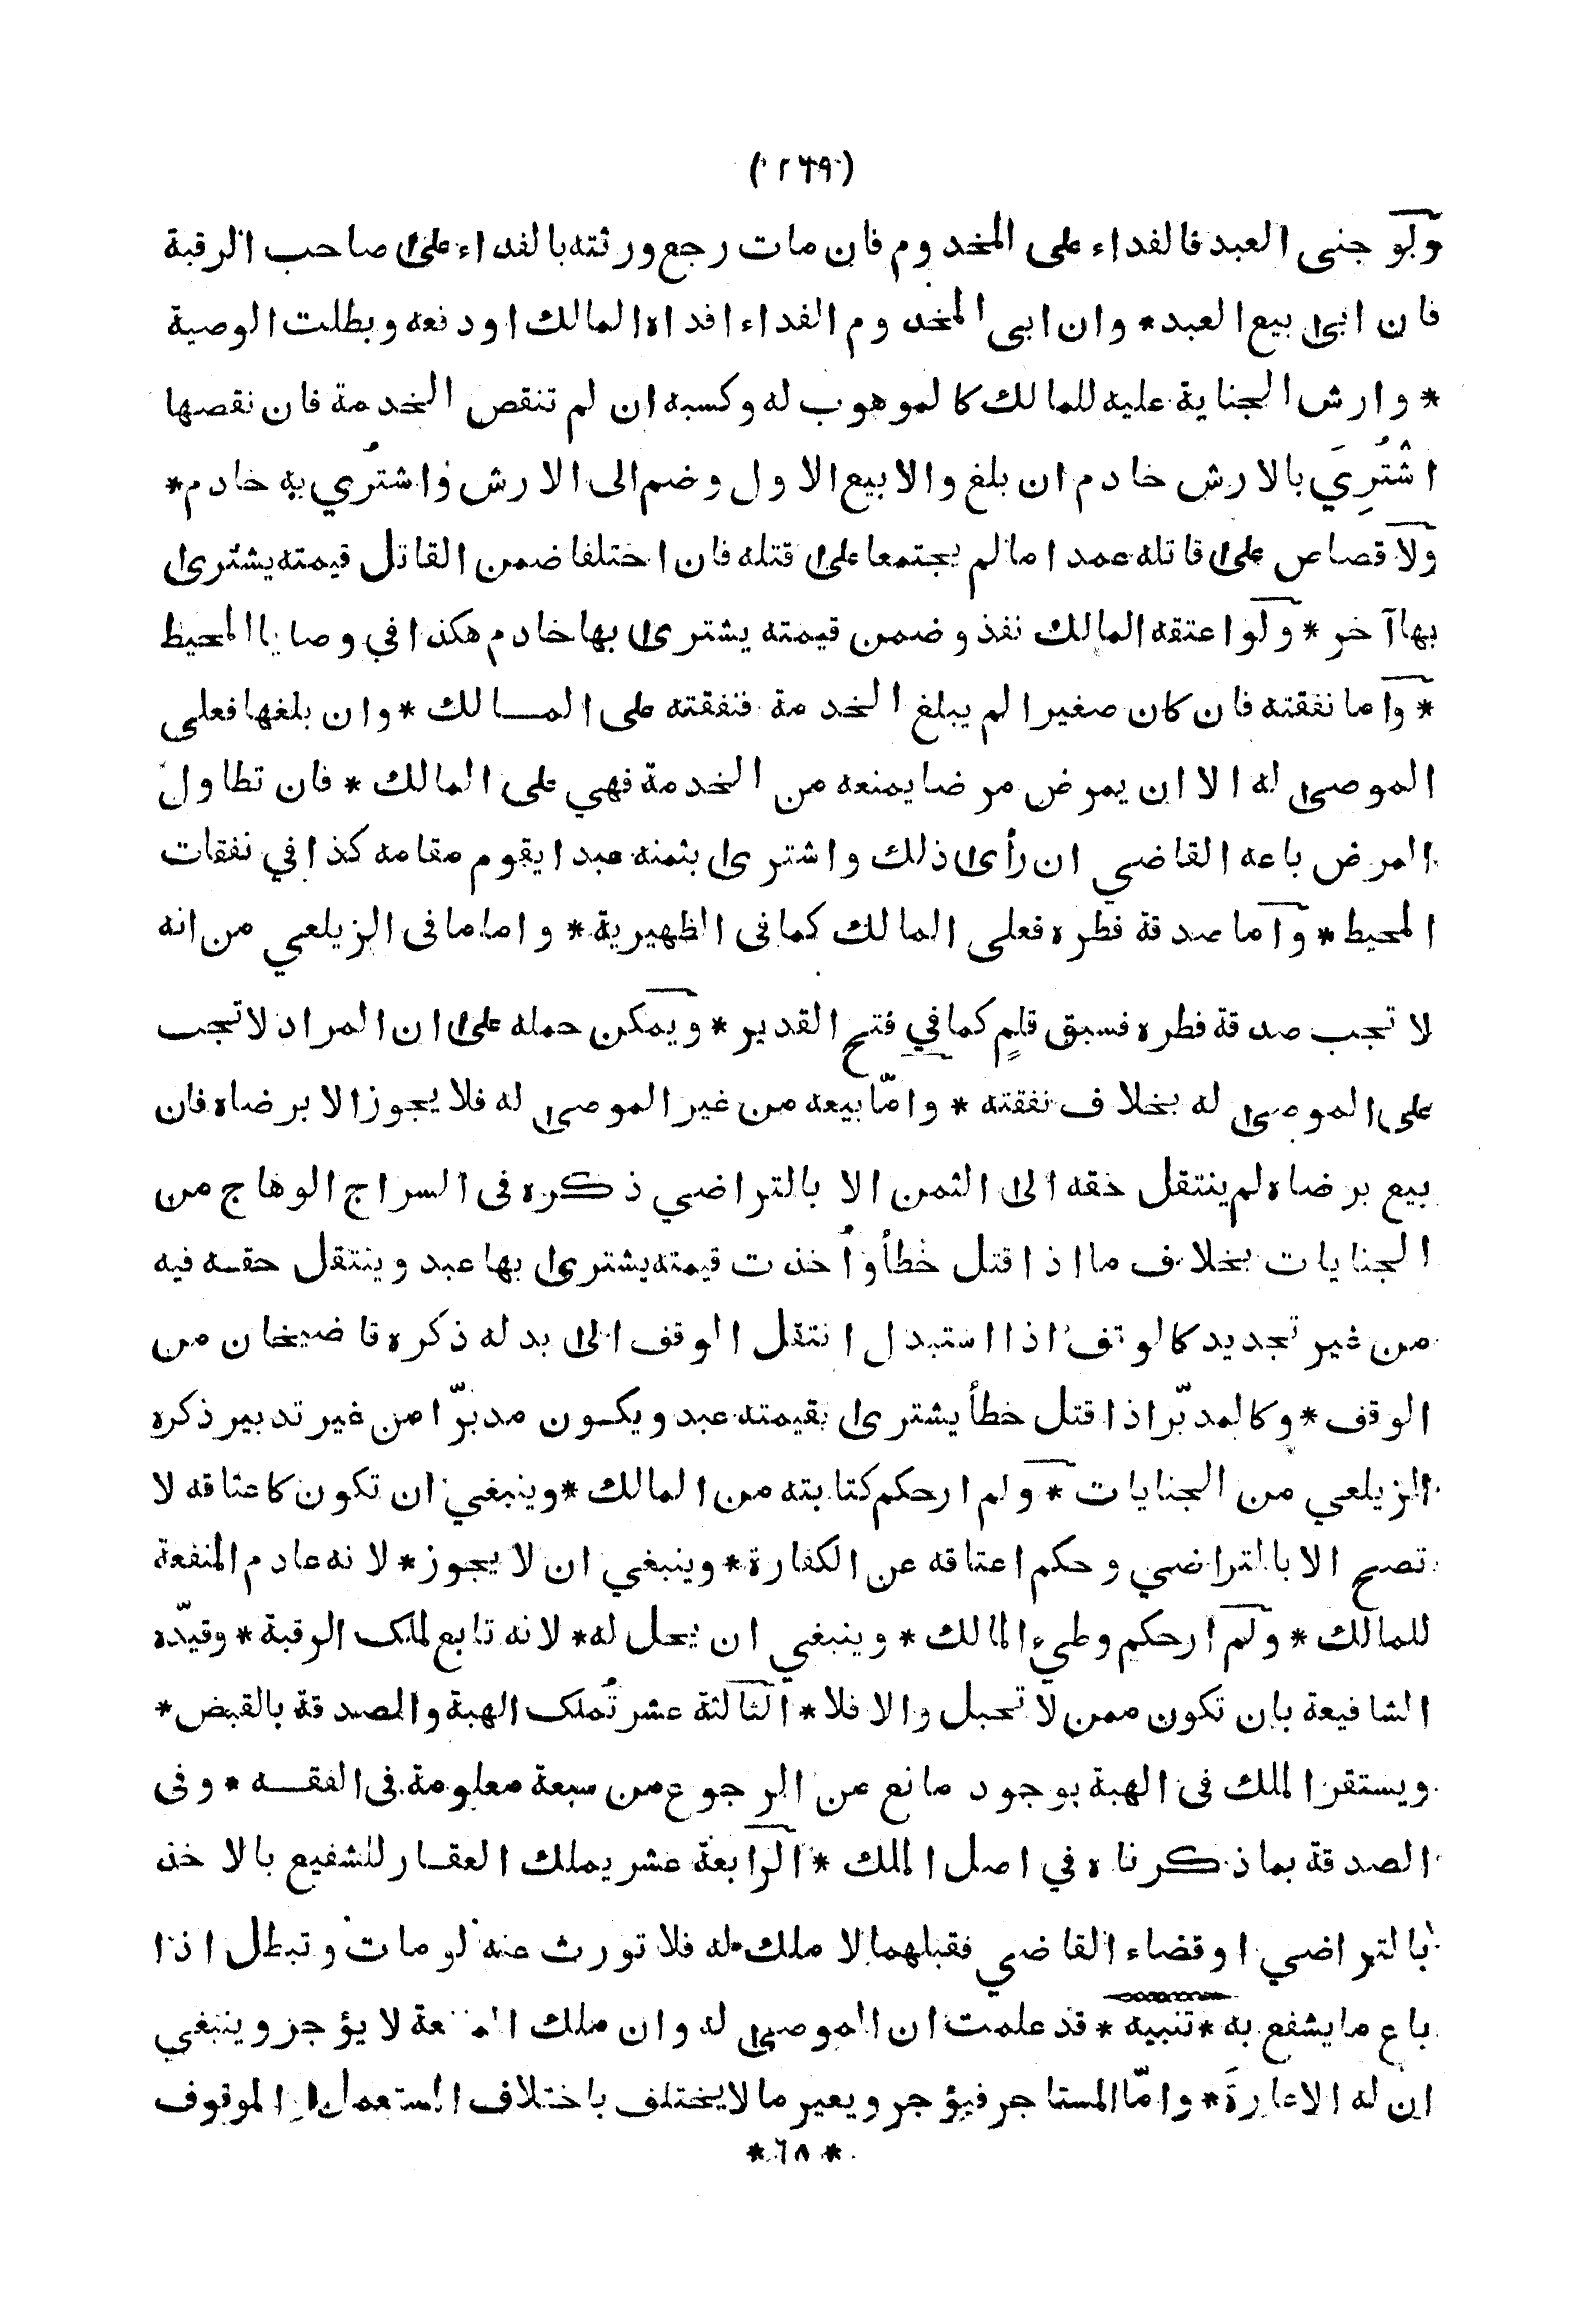 (٢٦٩)
ولو جنى العبد فالفداء على المخدوم فان مات رجع ورثته بالفداء على صاحب الرقبة
فان ابى بيع العبد * وان ابى المخدوم الفداء افداه المالك او دفعه وبطلت الوصية
* وارش الجناية عليه للمالك كالموهوب له وكسبه ان لم تنقص الخدمة فان نقصها
اشْتُرِيَ بالارش خادم ان بلغ والا بيع الاول وضم الى الارش واشتُري به خادم *
ولا قصاص على قاتله عمدا مالم يجتمعا على قتله فان اختلفا ضمن القاتل قيمته يشترى
بها آخر * ولو اعتقه المالك نفذ وضمن قيمته يشترى بها خادم هكذا في وصايا المحيط
* واما نفقته فان كان صغيرا لم يبلغ الخدمة فنفقته على المالك * وان بلغها فعلى
الموصى له الا ان يمرض مرضا يمنعه من الخدمة فهي على المالك * فان تطاول
المرض باعه القاضي ان رأى ذلك واشترى بثمنه عبدا يقوم مقامه كذا في نفقات
المحيط * واما صدقة فطره فعلى المالك كما فى الظهيرية * واما ما فى الزيلعي من انه
لا تجب صدقة فطره فسبق قلمٍ كما في فتح القدير * ويمكن حمله على ان المراد لا تجب
على الموصى له بخلاف نفقته * وامّا بيعه من غير الموصى له فلا يجوز الا برضاه فان
بيع برضاه لم ينتقل حقه الى الثمن الا بالتراضي ذكره فى السراج الوهاج من
الجنايات بخلاف ما اذا قتل خطأ وأُخذت قيمته يشترى بها عبد وينتقل حقه فيه
من غير تجديد كالوقف اذا استبدل انتقل الوقف الى بدله ذكره قاضيخان من
الوقف * وكالمدبّر اذا قتل خطأ يشترى بقيمته عبد ويكون مدبرّا من غير تدبير ذكره
الزيلعي من الجنايات * ولم ار حكم كتابته من المالك * وينبغي ان تكون كاعتاقه لا
تصح الا بالتراضي وحكم اعتاقه عن الكفارة * وينبغي ان لا يجوز * لانه عادم المنفعة
للمالك * ولم ار حكم وطيء المالك * وينبغي ان يحل له * لانه تابع لملك الرقبة * وقيّده
الشافيعة بان تكون ممن لا تحبل والا فلا * الثالثة عشر تُملك الهبة والصدقة بالقبض *
ويستقر الملك فى الهبة بوجود مانع من الرجوع من سبعة معلومة فى الفقه * وفى
الصدقة بما ذكرناه في اصل الملك * الرابعة عشر يملك العقار للشفيع بالاخذ
بالتراضي او قضاء القاضي فقبلهما لا ملك له فلا تورث عنه لو مات وتبطل اذا
باع ما يشفع به * تنبيه * قد علمت ان الموصى له وان ملك المنفعة لا يؤجر وينبغي
ان له الاعارةَ * وامّا المستاجر فيؤجر ويعير ما لا يختلف باختلاف المستعمل الموقوف
* ٦٨ *